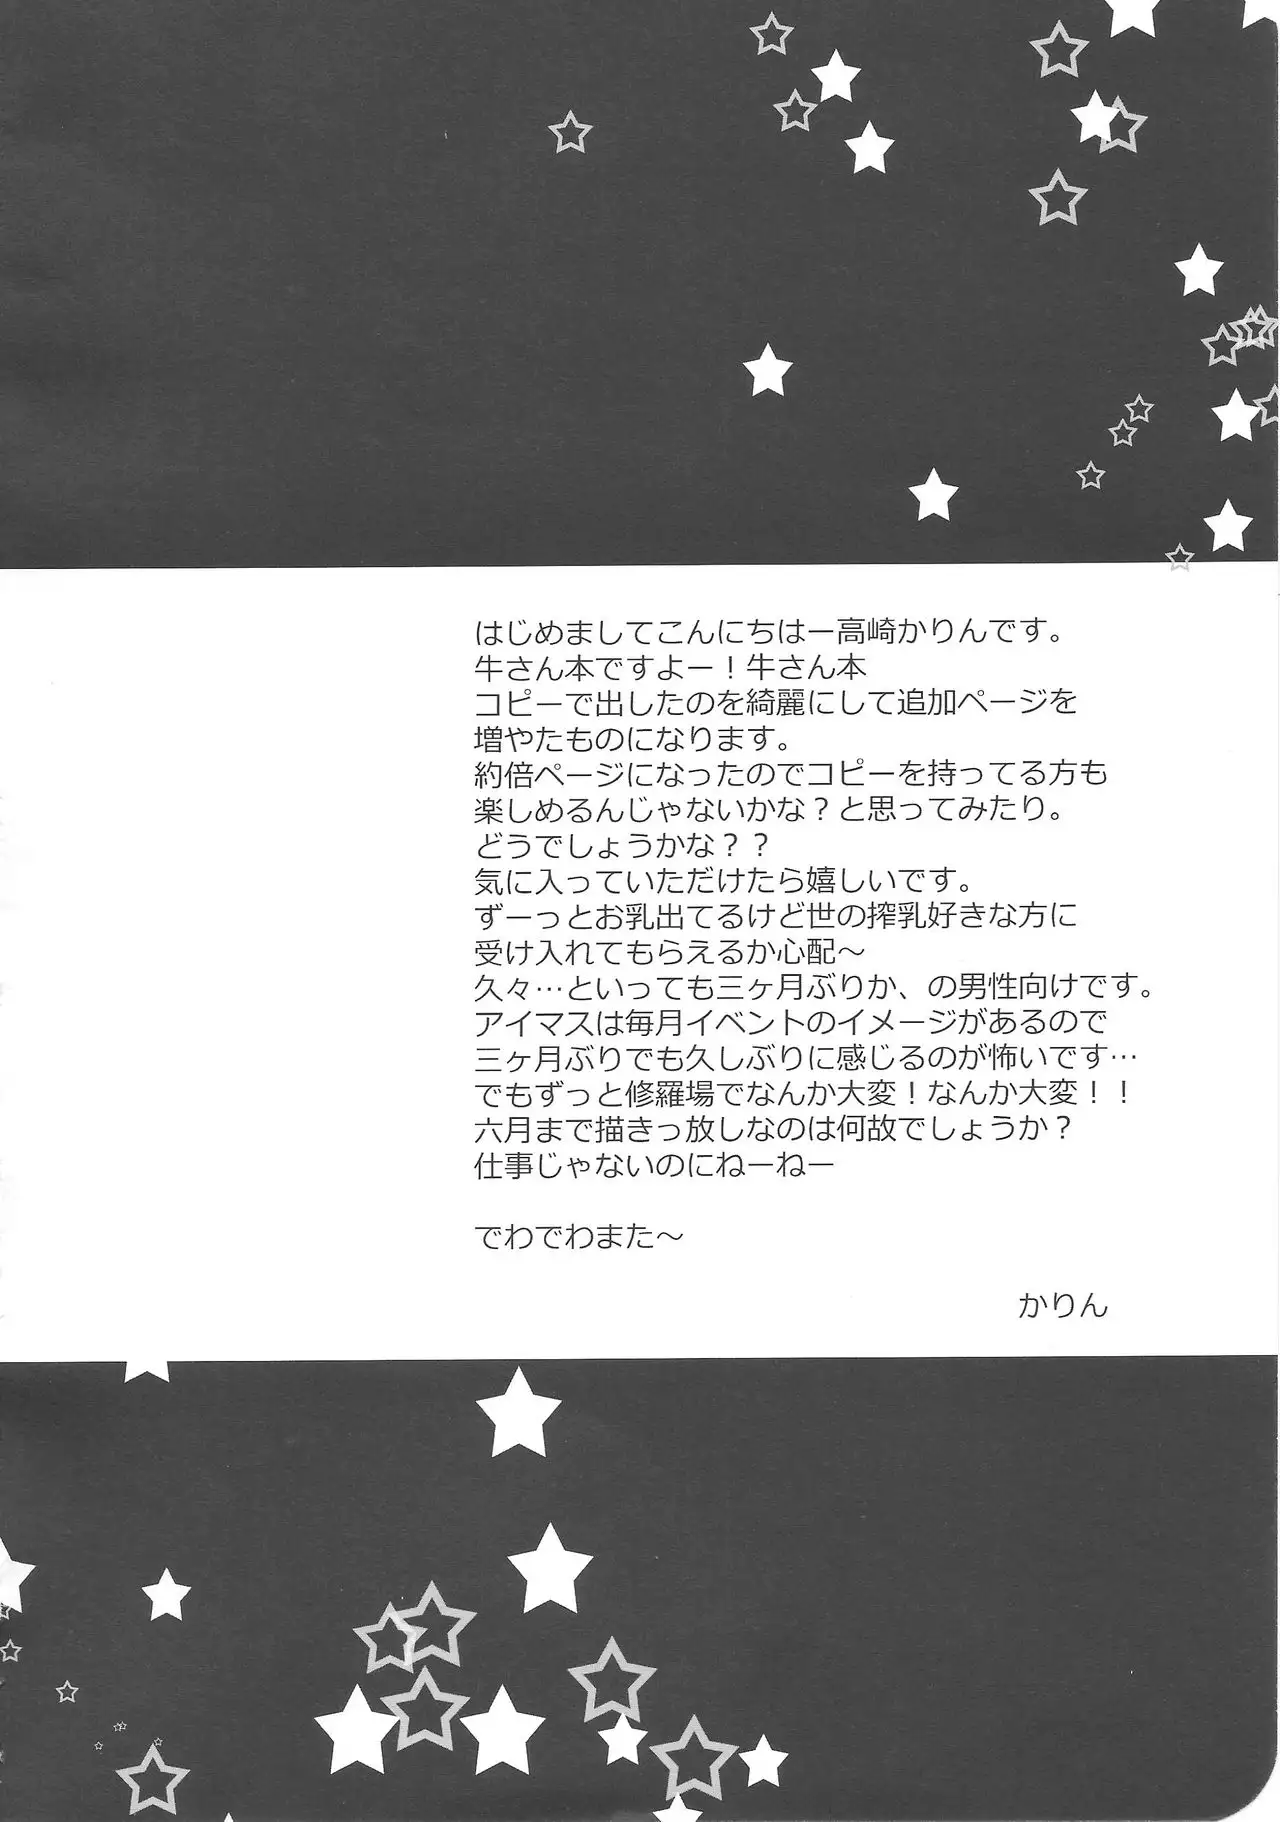 はじめましてこんにちはー高崎かりんです。
牛さん本ですよー！牛さん本
コピーで出したのを綺麗にして追加ページを
増やたものになります。
約倍ページになったのでコピーを持ってる方も
楽しめるんじゃないかな？と思ってみたり。
どうでしょうかな？？
気に入っていただけたら嬉しいです。
ずーっとお乳出てるけど世の搾乳好きな方に
受け入れてもらえるか心配～
久々…といっても三ヶ月ぶりか、の男性向けです。
アイマスは毎月イベントのイメージがあるので
三ヶ月ぶりでも久しぶりに感じるのが怖いです…
でもずっと修羅場でなんか大変！なんか大変！！
六月まで描きっ放しなのは何故でしょうか？
仕事じゃないのにねーねー
でわでわまた～
かりん